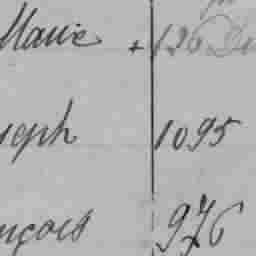 Marie + 126
seph 1095
nçois 976